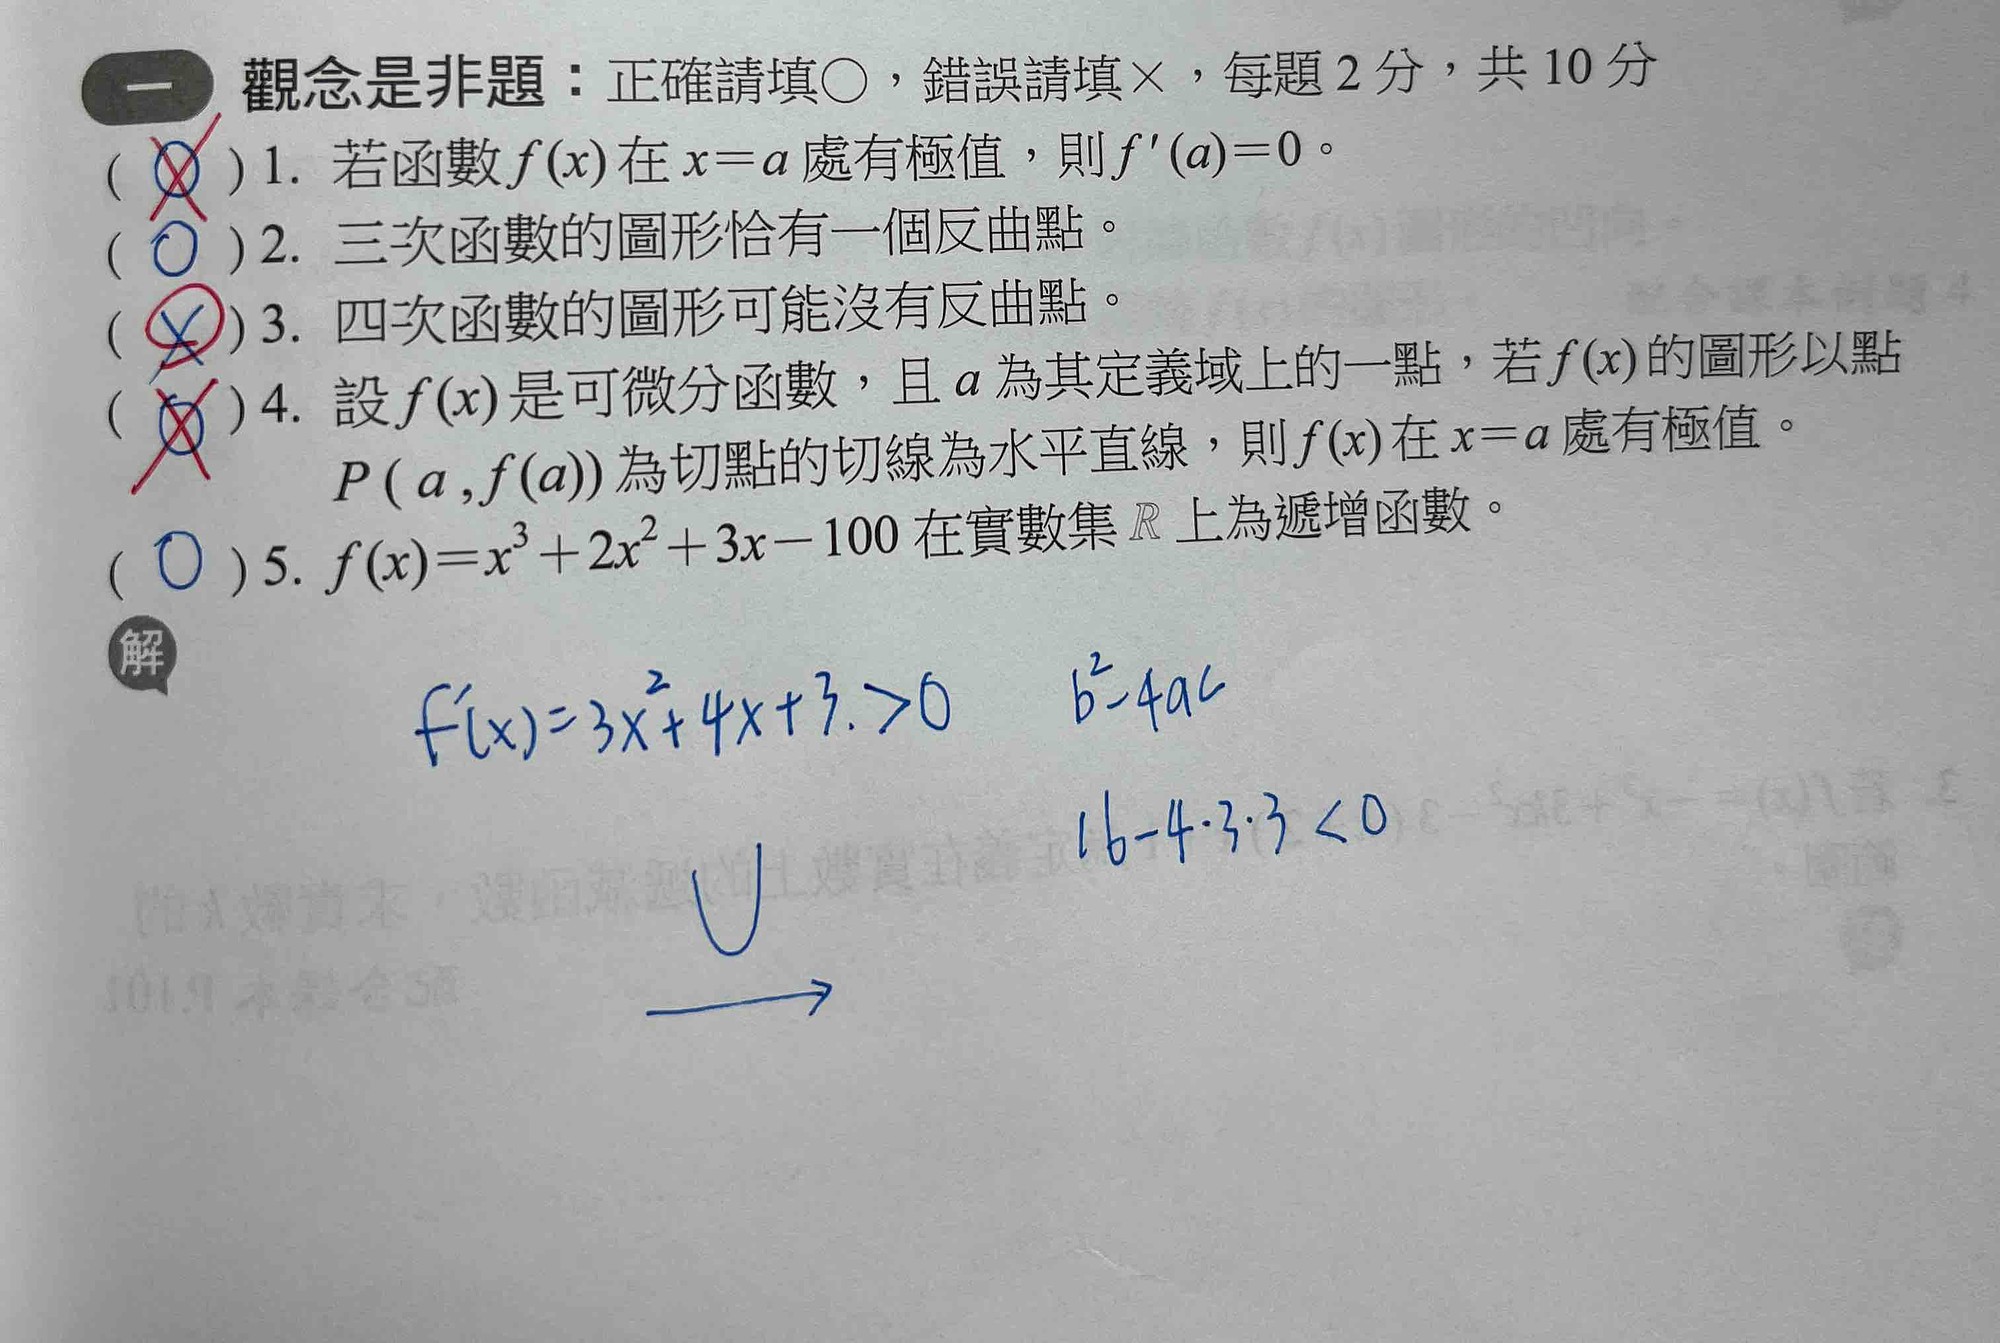 一 觀念是非題：正確請填○，錯誤請填×，每題 2 分，共 10 分
( X ) 1. 若函數 f(x) 在 x=a 處有極值，則 f′(a)=0。
( O ) 2. 三次函數的圖形恰有一個反曲點。
( O ) 3. 四次函數的圖形可能沒有反曲點。
( X ) 4. 設 f(x) 是可微分函數，且 a 為其定義域上的一點，若 f(x) 的圖形以點
P(a,f(a)) 為切點的切線為水平直線，則 f(x) 在 x=a 處有極值。
( O ) 5. f(x)=x³+2x²+3x−100 在實數集 ℝ 上為遞增函數。
解
f′(x)=3x²+4x+3.>0 b²-4ac
16-4·3·3<0